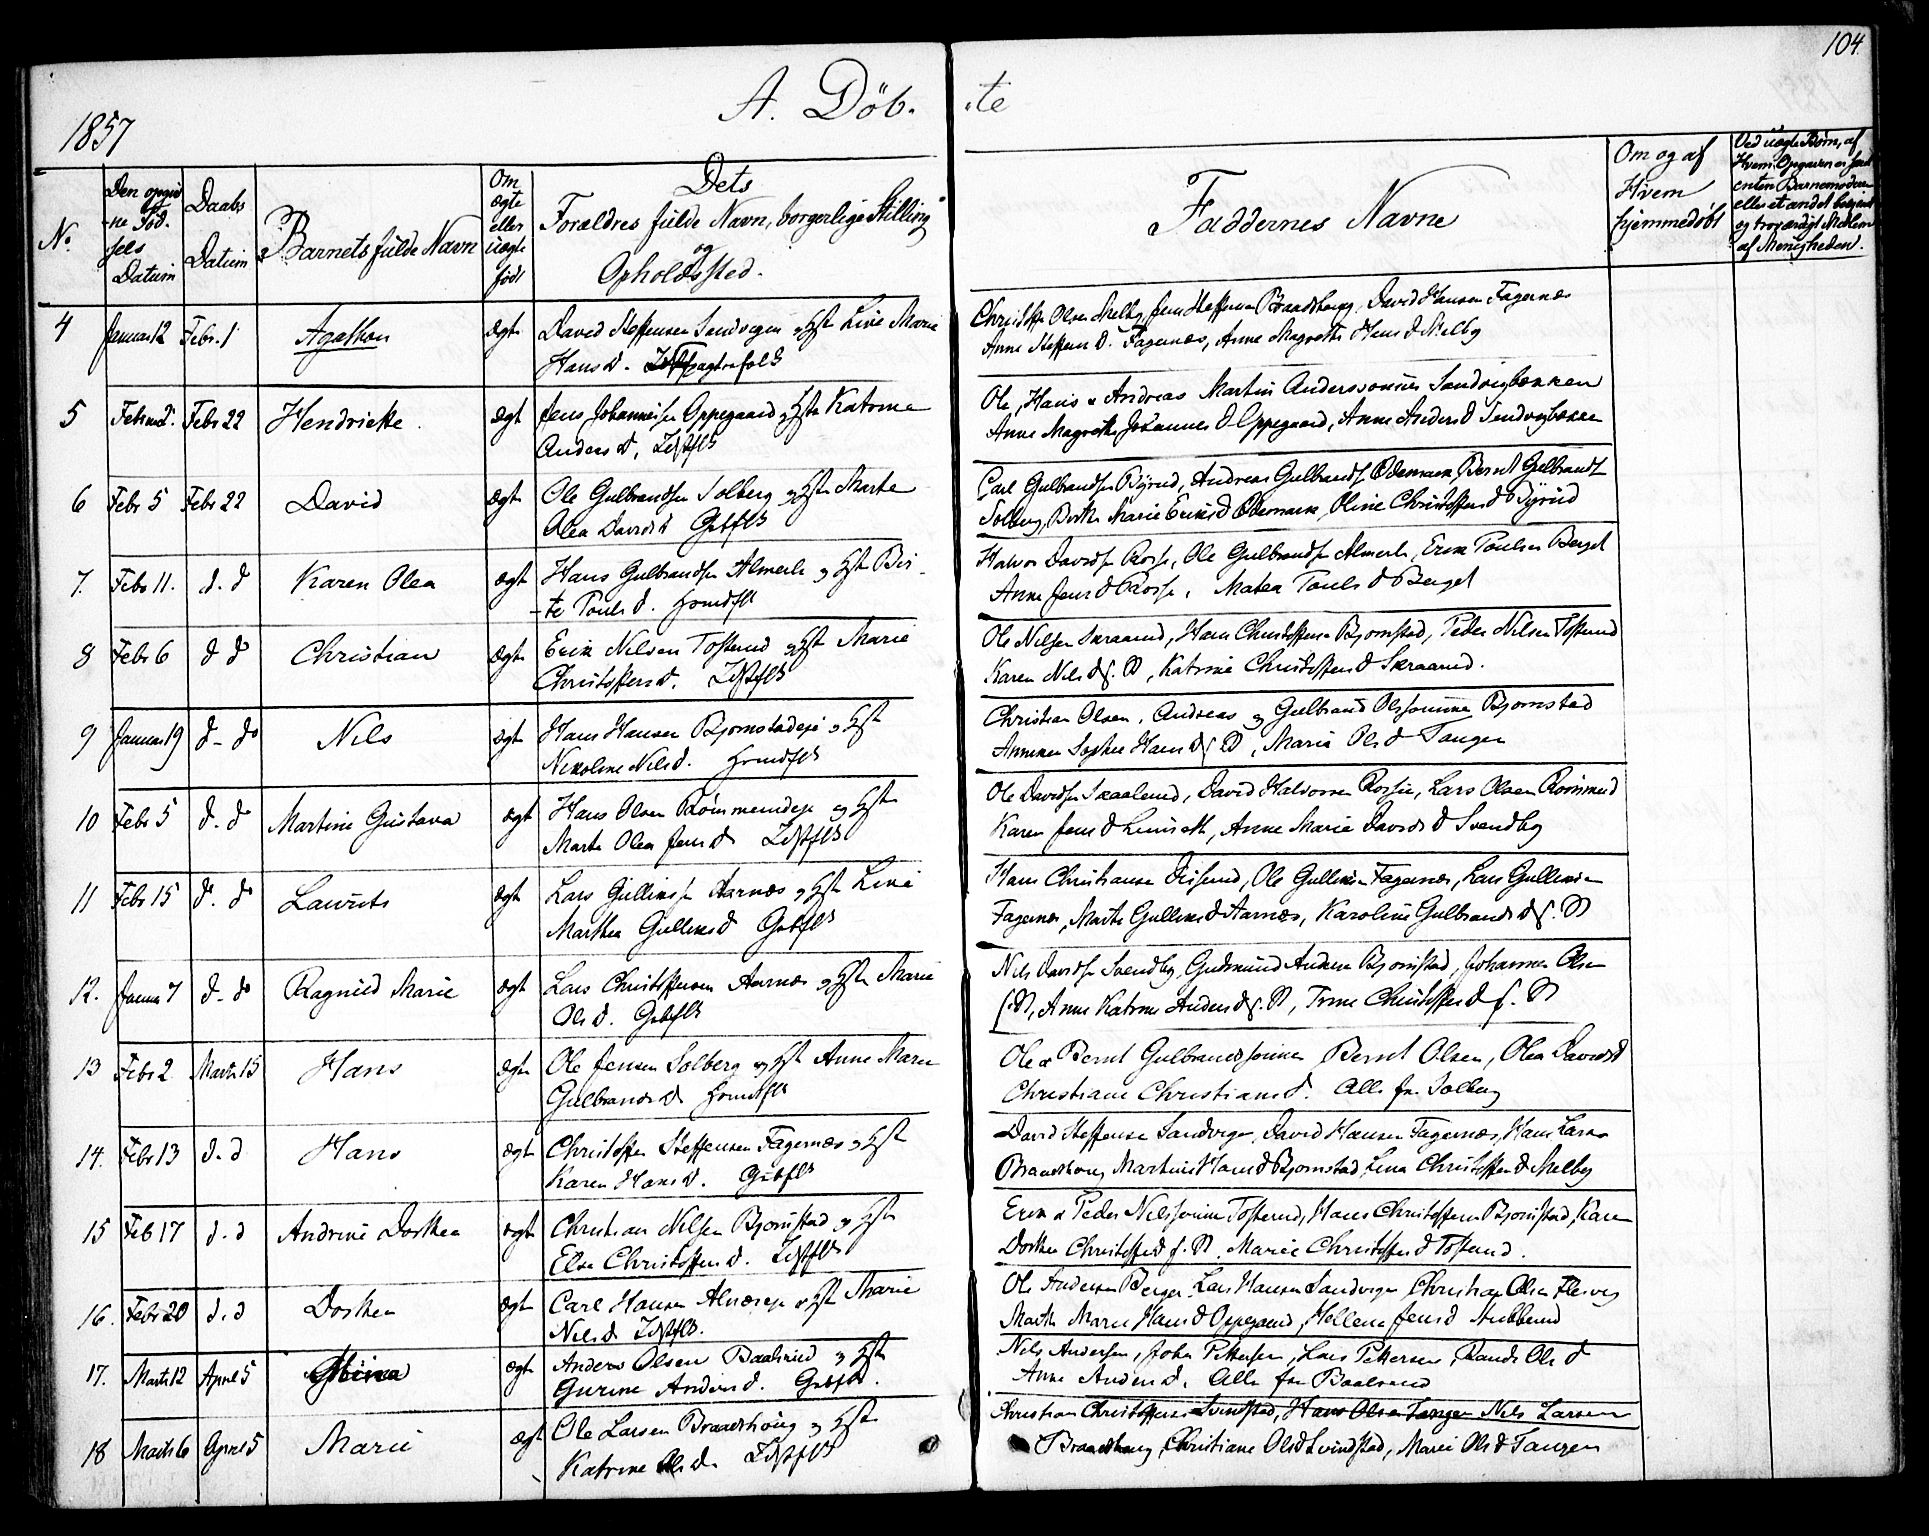 104.
1857
A. Döb-
-te
No.
Den opgiv
-ne Föd-
sels
Datum
Daabs
Datum
Barnets fulde Navn
Om
ægte
eller
uægte
födt
Dets
Forældres fulde Navn, borgerlige Stilling
og
Opholdssted.
Faddernes Navne
Om og af
Hvem
hjemmedöbt
Ved uægte Börn, af
Hvem Opgaven er skeet
enten Barnemoderen
eller et andet bekjendt
og troværdigt Medlem
af Menigheden.
4 Januar 12 Febr. 1 Agathon ægte David Steffensen Sandvigen og Hst Live Marie
Hans D.
Christoffer Olsen Melby, Jens Steffensen Brandshoug, David Hansen Fagernæs
Anne Steffens D. Fagernæs, Anne Magrethe Hans D Melby
5 Februar 2. Febr 22 Hendrikke. ægt Jens Johannesen Oppegaard og Hst Katrine
Anders D. Lostfls
Ole, Hans & Andreas Martin Anderssönner Sandvigbækken
Anne Magrethe Johannes D Oppegaard, Anne Anders D Sandvigbækken
6 Febr 5 Febr 22 David ægte Ole Gulbrandsen Solberg og Hst Marte
Olea Davids D Gbfls
Carl Gulbrandsen Byrud, Andreas Gulbrands. Ödemark, Bernt Gulbrands.
Solberg, Berthe Marie Eriks D Ödemark, Oline Christoffers D Byrud
7. Febr 11. d. d Karen Olea ægt Hans Gulbrandsen Almerk og Hst Bir-
-te Pouls D. Hsmdfls
Halvor Davidsen Rosse, Ole Gulbrandsen Almerk, Erik Poulsen Berget
Anne Jens D Rosse, Mathea Pouls D Berget
8 Febr 6 d do Christian ægte Erik Nilsen Tosterud og Hst Marie
Christoffers D. Lostfls
Ole Nilsen Skraarud, Hans Christoffersen Bjornstad, Peder Nilsen Tosterud
Karen Nils D f. N, Katrine Christoffers D Skraarud.
9 Januar 19 d - do Nils ægte Hans Hansen Bjornstadeje og Hst
Nikoline Nils D. Hsmdfls
Christian Olsen, Andreas og Gulbrand Olssönner Bjornstad
Anniken Sophie Hans D f N, Marie Ols D Tangen
10 Febr 5 d. d Martine Gustava ægt Hans Olsen Römmerudeje og Hst
Marte Olea Jens D Lostfls
Ole Davidsen Skaalerud, David Halvorsen Rosse, Lars Olsen Römmerud
Karen Jens D, Anne Marie Davids D Svendby
11 Febr 15 d. do Laurits ægt Lars Gulliksen Aarnæs og Hst Live
Marthea Gulliks D Gbfls
Hans Christiansen, Ole Gulliksen Fagernæs, Lars Gulliksen
Fagernæs, Marthe Gulliks D Aarnæs, Karoline Gulbrands D f. N
12. Januar 7 d - do Ragnild Marie ægt Lars Christoffersen Aarnæs og Hst Marie
Ols D. Gbfls
Nils Davidsen Svendby, Gudmund Andersen Bjornstad, Johannes Olsen
f. N, Anne Katrine Anders D f. N, Trine Christoffers D f. N
13 Febr 2 Marts 15 Hans ægte Ole Jensen Solberg og Hst Anne Marie
Gulbrands D Hsmdfls
Ole & Bernt Gulbrandssönner Bernt Olsen, Olea Davids D
Christiane Christians D. Alle fra Solberg
14. Febr 13 d. d Hans ægte Christoffer Steffensen Fagernæs og Hst
Karen Hans D. Gbfls
David Steffensen Sandvigen, David Hansen Fagernæs, Hans Larsen
Brandshoug, Martine Hans D Bjornstad, Lena Christoffers D Melby
15 Feb 17 d. d Andrine Dorthea ægt Christian Nilsen Bjornstad og Hst
Else Christoffers D. Lostfls
Erik & Peder Nilssönner Tosterud, Hans Christoffersen Bjornstad, Karen
Dorthea Christoffers D f. N, Marie Christoffers D Tosterud.
16. Febr 20 d. d Dorthea ægt Carl Hansen Alværneje & Hst Marie
Nils D Lostfls.
Ole Andersen Berger, Lars Hansen Sandvigen, Christian Olsen
Marthe Marie Hans D Oppegaard, Hellena Jens D Stubberud
17. Marts 12 April 5 ægt Anders Olsen Baalerud og Hst
Gurine Anders D. Gbfls.
Nils Andersen, Johan Pettersen, Lars Pettersen, Randi Ols D
Anne Anders D. Alle fra Baalerud
18 Marts 6 April 5 Marie ægt Ole Larsen Brandshoug og Hst
Katrine Ols D. Lostfls
Christian Christoffersen Svindstad, Hans Olsen Tangen Nils Larsen
Brandshoug, Christiane Ols D Svindstad, Marie Ols D Tangen